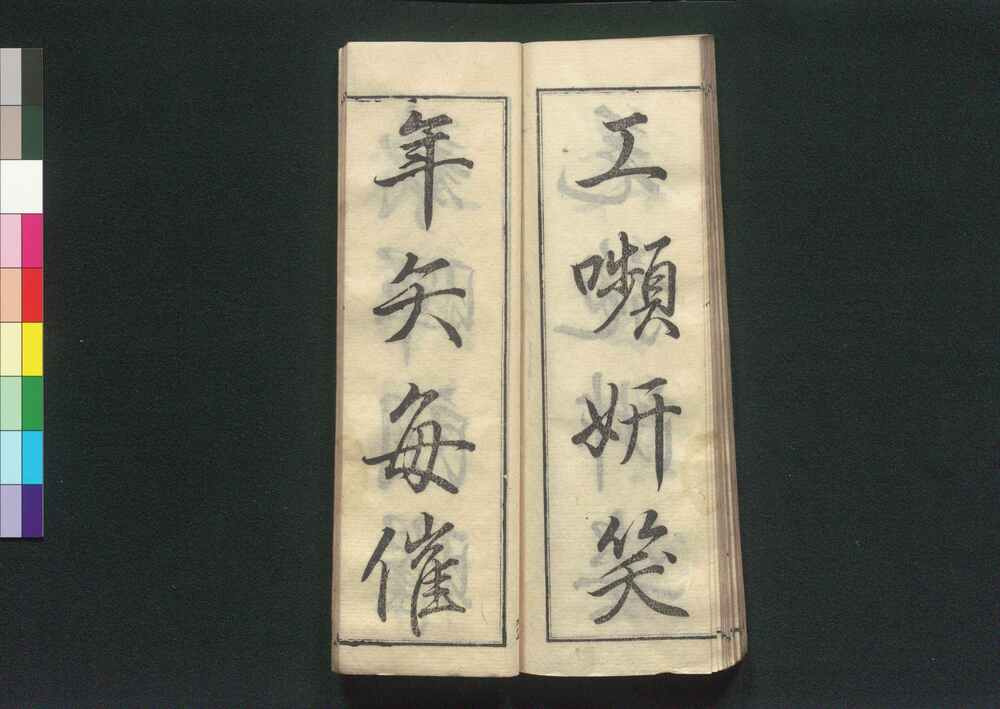 工嚬妍笑
年矢毎催